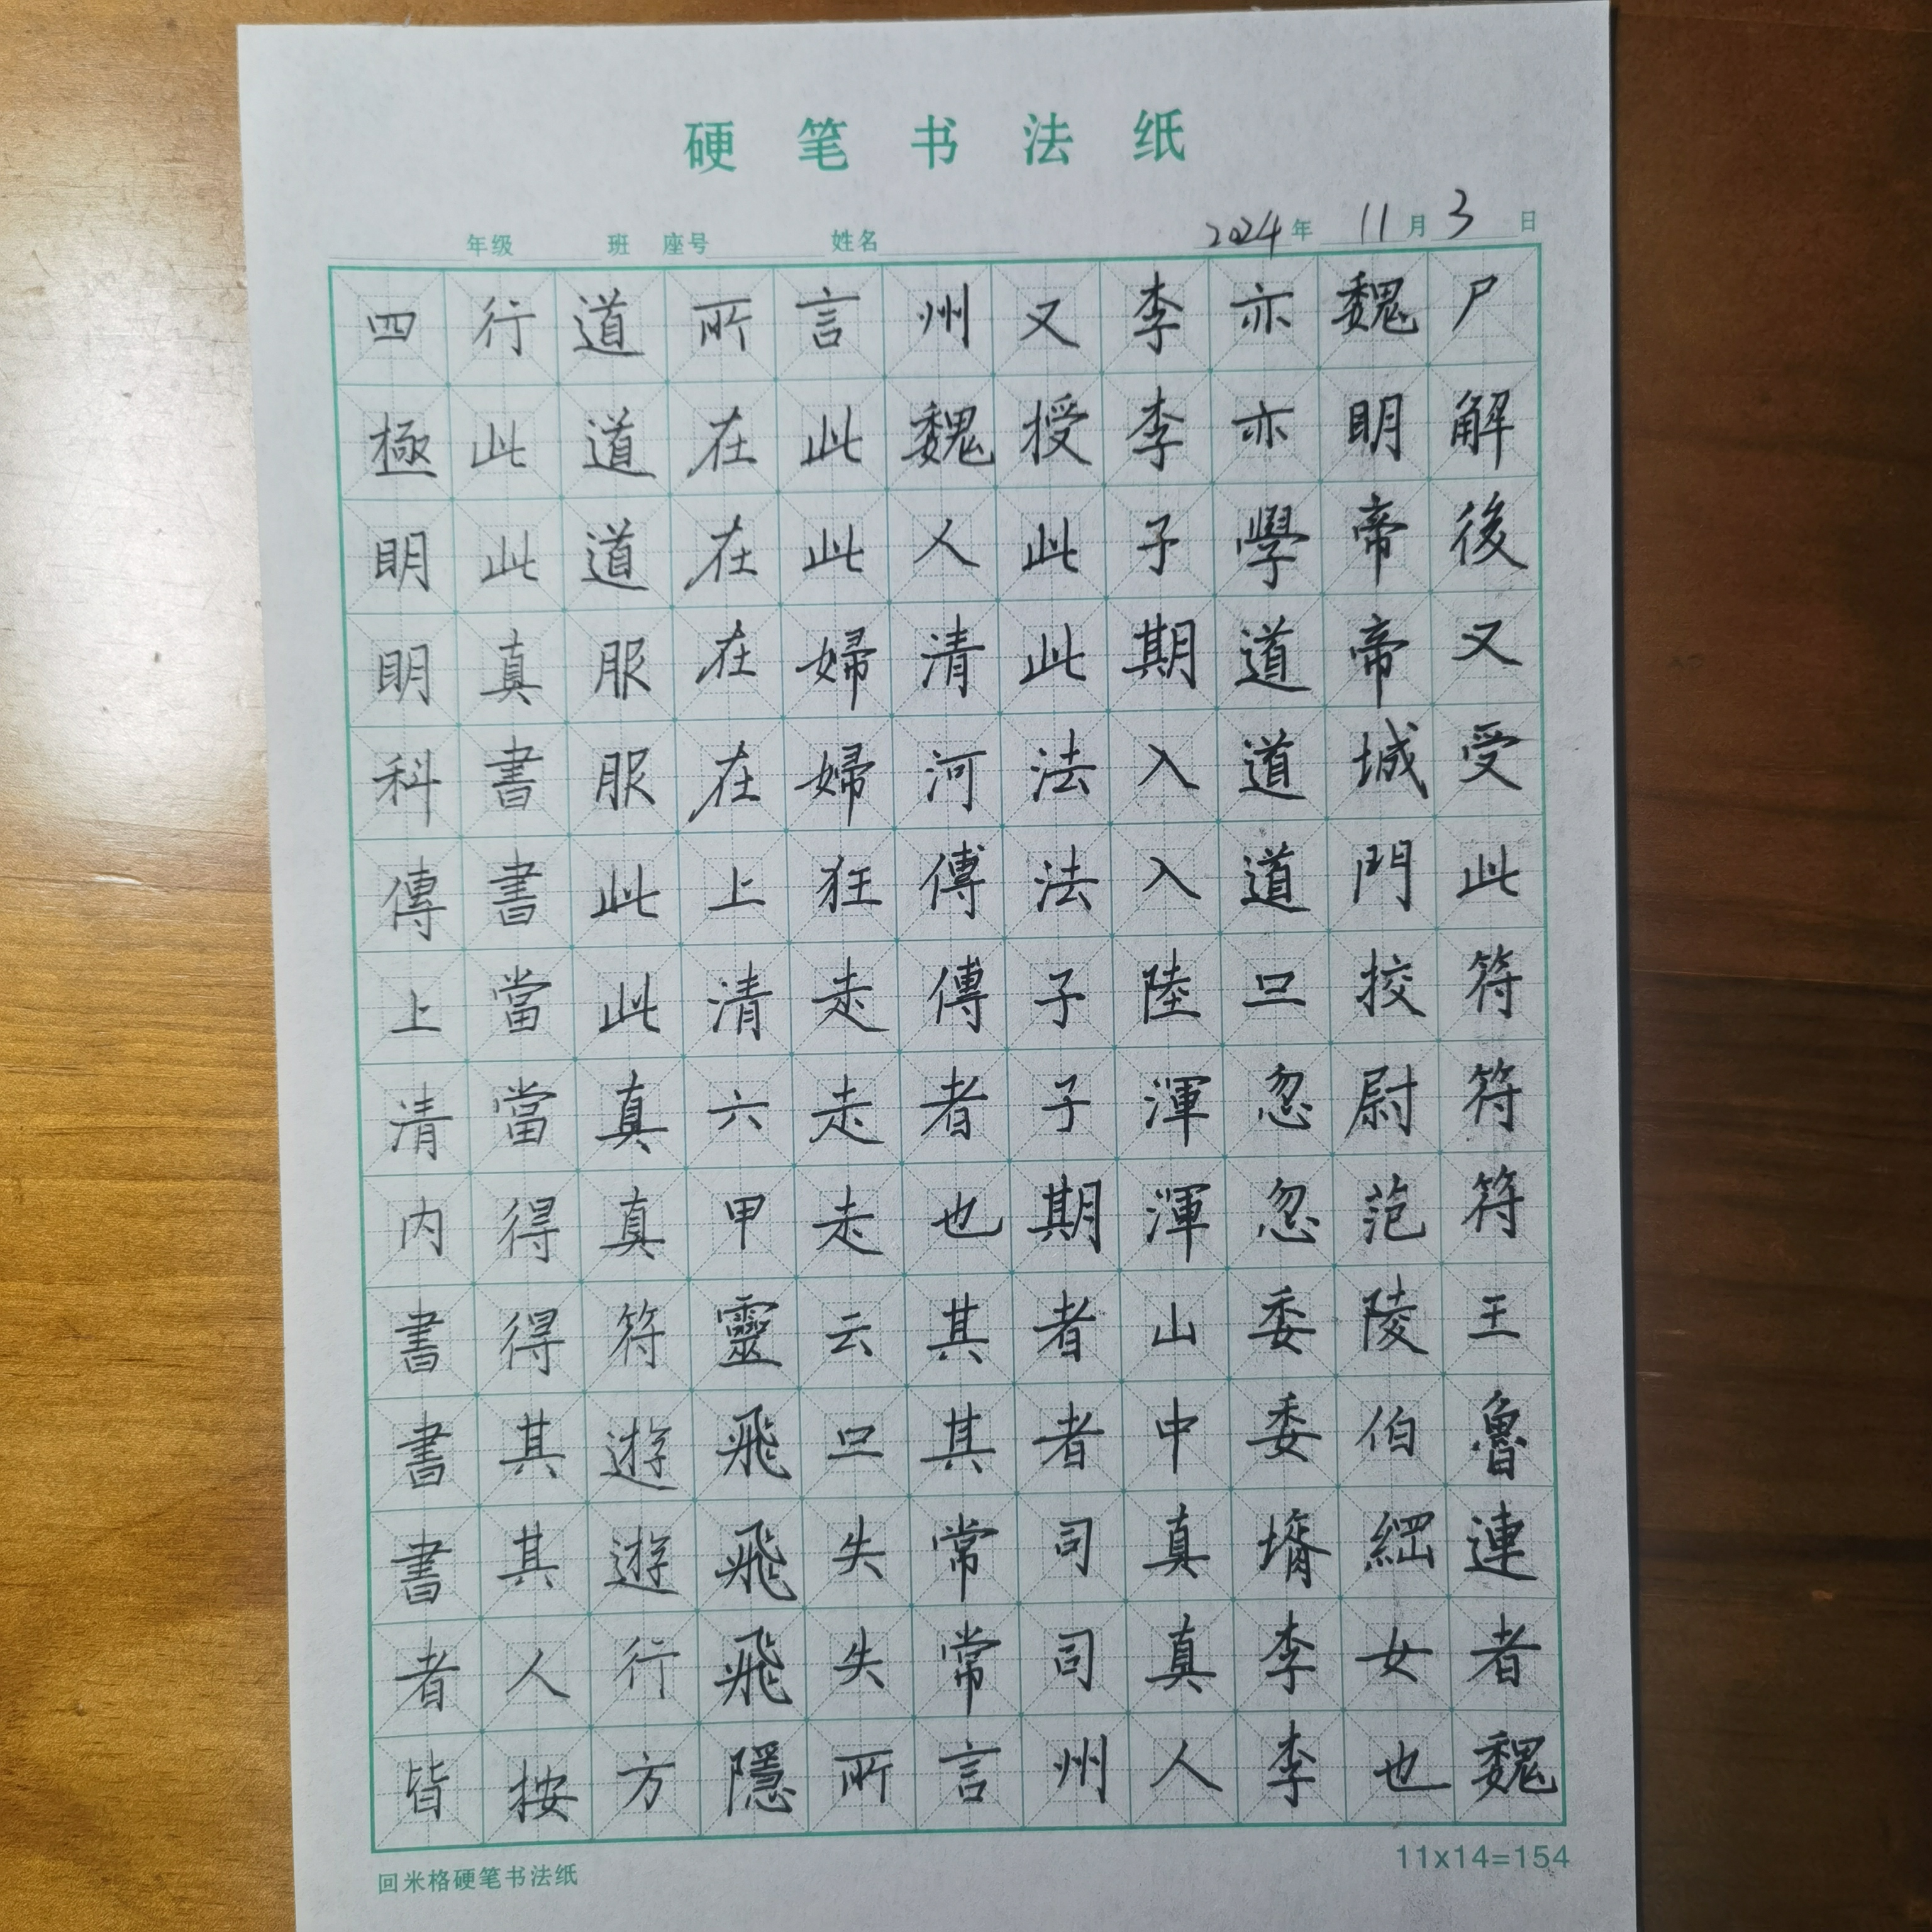 硬笔书法纸
年级 班 座号 姓名 2024年11月3日
尸解後又受此符符符王魯連者魏
魏明帝帝城門挍尉范陵伯綑女也
亦亦學道道道口忽忽委委壻李李
李李子期入入陸渾渾山中真真人
又授此此法法子子期者者司司州
州魏人清河傳傳者也其其常常言
言此此婦婦狂走走走云口失失所
所在在在在上清六甲靈飛飛飛隱
道道道服服此此真真符遊遊行方
行此此真書書當當得得其其人按
四極明明科傳上清内書書書者皆
回米格硬笔书法纸
11x14=154